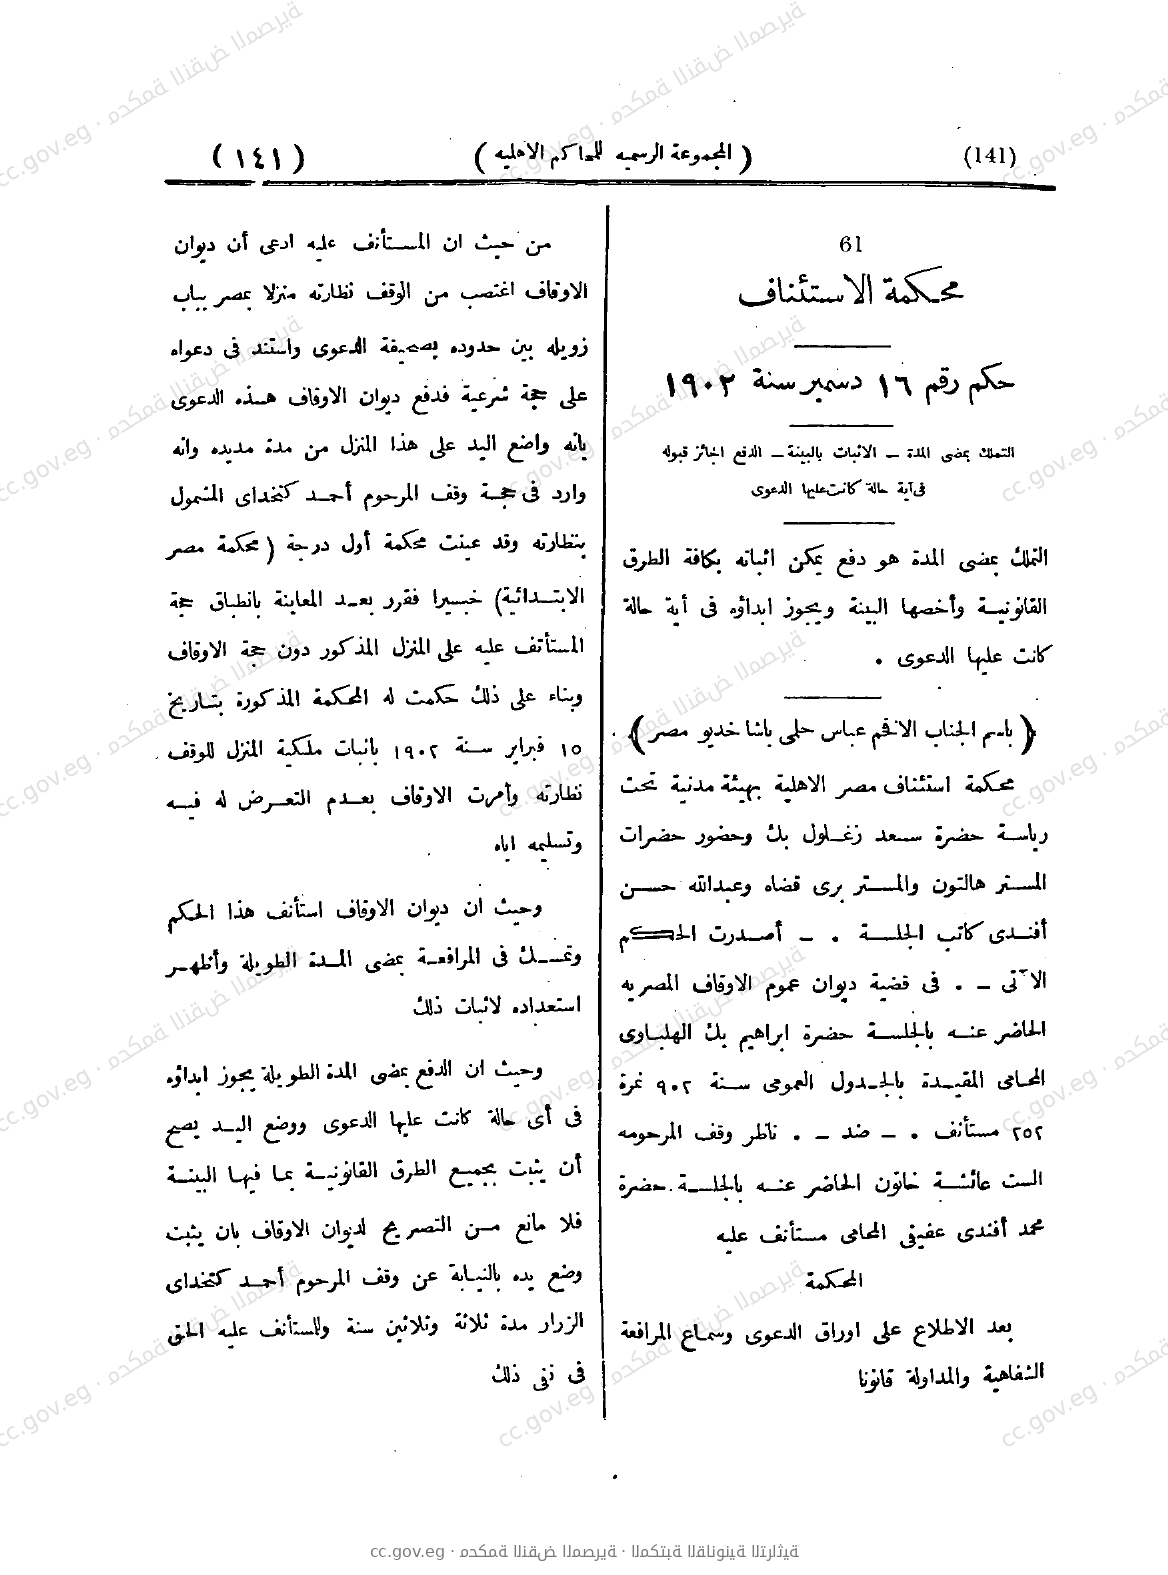 (141) ( المجموعة الرسميه للمحاكم الاهليه ) (١٤١)
61
محكمة الاستئناف
حكم رقم ١٦ دسمبر سنة ١٩٠٢
التملك بمضى المدة – الاثبات بالبينة – الدفع الجائز قبوله
فى آية حالة كانت عليها الدعوى
التملك بمضى المدة هو دفع يمكن اثباته بكافة الطرق
القانونيــة وأخصها البينة ويجوز ابداؤه فى أية حالة
كانت عليها الدعوى .
( باسم الجناب الافخم عباس حلمى باشا خديو مصر )
محكمة استئناف مصر الاهلية بهيئة مدنية تحت
رياسة حضرة سعد زغلول بك وحضور حضرات
المستر هالتون والمستر برى قضاه وعبدالله حسن
أفندى كاتب الجلسة . – أصدرت الحكم
الآتى – . فى قضية ديوان عموم الاوقاف المصريه
الحاضر عنه بالجلسة حضرة ابراهيم بك الهلباوى
المحامى المقيدة بالجدول العمومى سنة ٩٠٢ نمرة
٢٥٢ مستأنف . – ضد – . ناظر وقف المرحومه
الست عائشة خاتون الحاضر عنه بالجلسة حضرة
محمد أفندى عفيفى المحامى مستأنف عليه
المحكمة
بعد الاطلاع على اوراق الدعوى وسماع المرافعة
الشفاهية والمداولة قانونا
من حيث ان المستأنف عليه ادعى أن ديوان
الاوقاف اغتصب من الوقف نظارته منزلا بمصر بباب
زويله بين حدوده بصحيفة الدعوى واستند فى دعواه
على حجة شرعية فدفع ديوان الاوقاف هذه الدعوى
بانه واضع اليد على هذا المنزل من مدة مديده وانه
وارد فى حجة وقف المرحوم أحمد كتخداى المشمول
بنظارته وقد عينت محكمة أول درجة ( محكمة مصر
الابتدائية) خبيرا فقرر بعد المعاينة بانطباق حجة
المستأنف عليه على المنزل المذكور دون حجة الاوقاف
وبناء على ذلك حكمت له المحكمة المذكورة بتاريخ
١٥ فبراير سنة ١٩٠٢ باثبات ملكية المنزل للوقف
نظارته وأمرت الاوقاف بعدم التعرض له فيه
وتسليمه اياه
وحيث ان ديوان الاوقاف استأنف هذا الحكم
وتمسك فى المرافعة بمضى المدة الطويلة وأظهر
استعداده لاثبات ذلك
وحيث ان الدفع بمضى المدة الطويلة يجوز ابداؤه
فى أى حالة كانت عليها الدعوى ووضع اليد يصح
أن يثبت بجميع الطرق القانونية بما فيها البينة
فلا مانع من التصريح لديوان الاوقاف بان يثبت
وضع يده بالنيابة عن وقف المرحوم أحمد كتخداى
الزرار مدة ثلاثة وثلاثين سنة وللمستأنف عليه الحق
فى نفى ذلك
cc.gov.eg · محكمة النقض المصرية · المكتبة القانونية التراثية